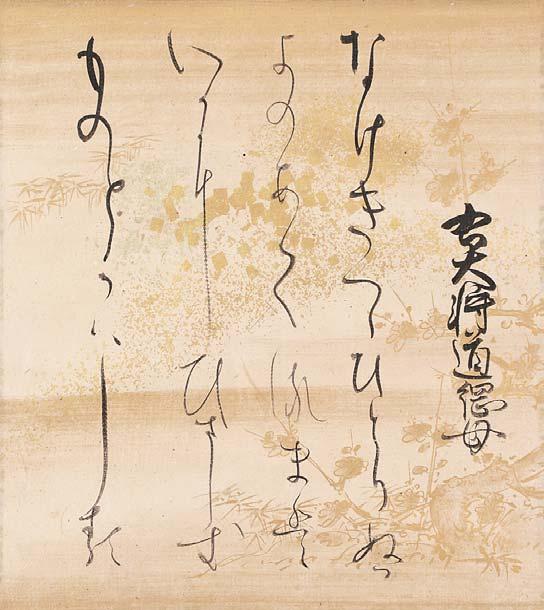 右大将道綱母
なけきつゝひとりぬる
よのあくるまは
いかにひさしき
ものとかはしる